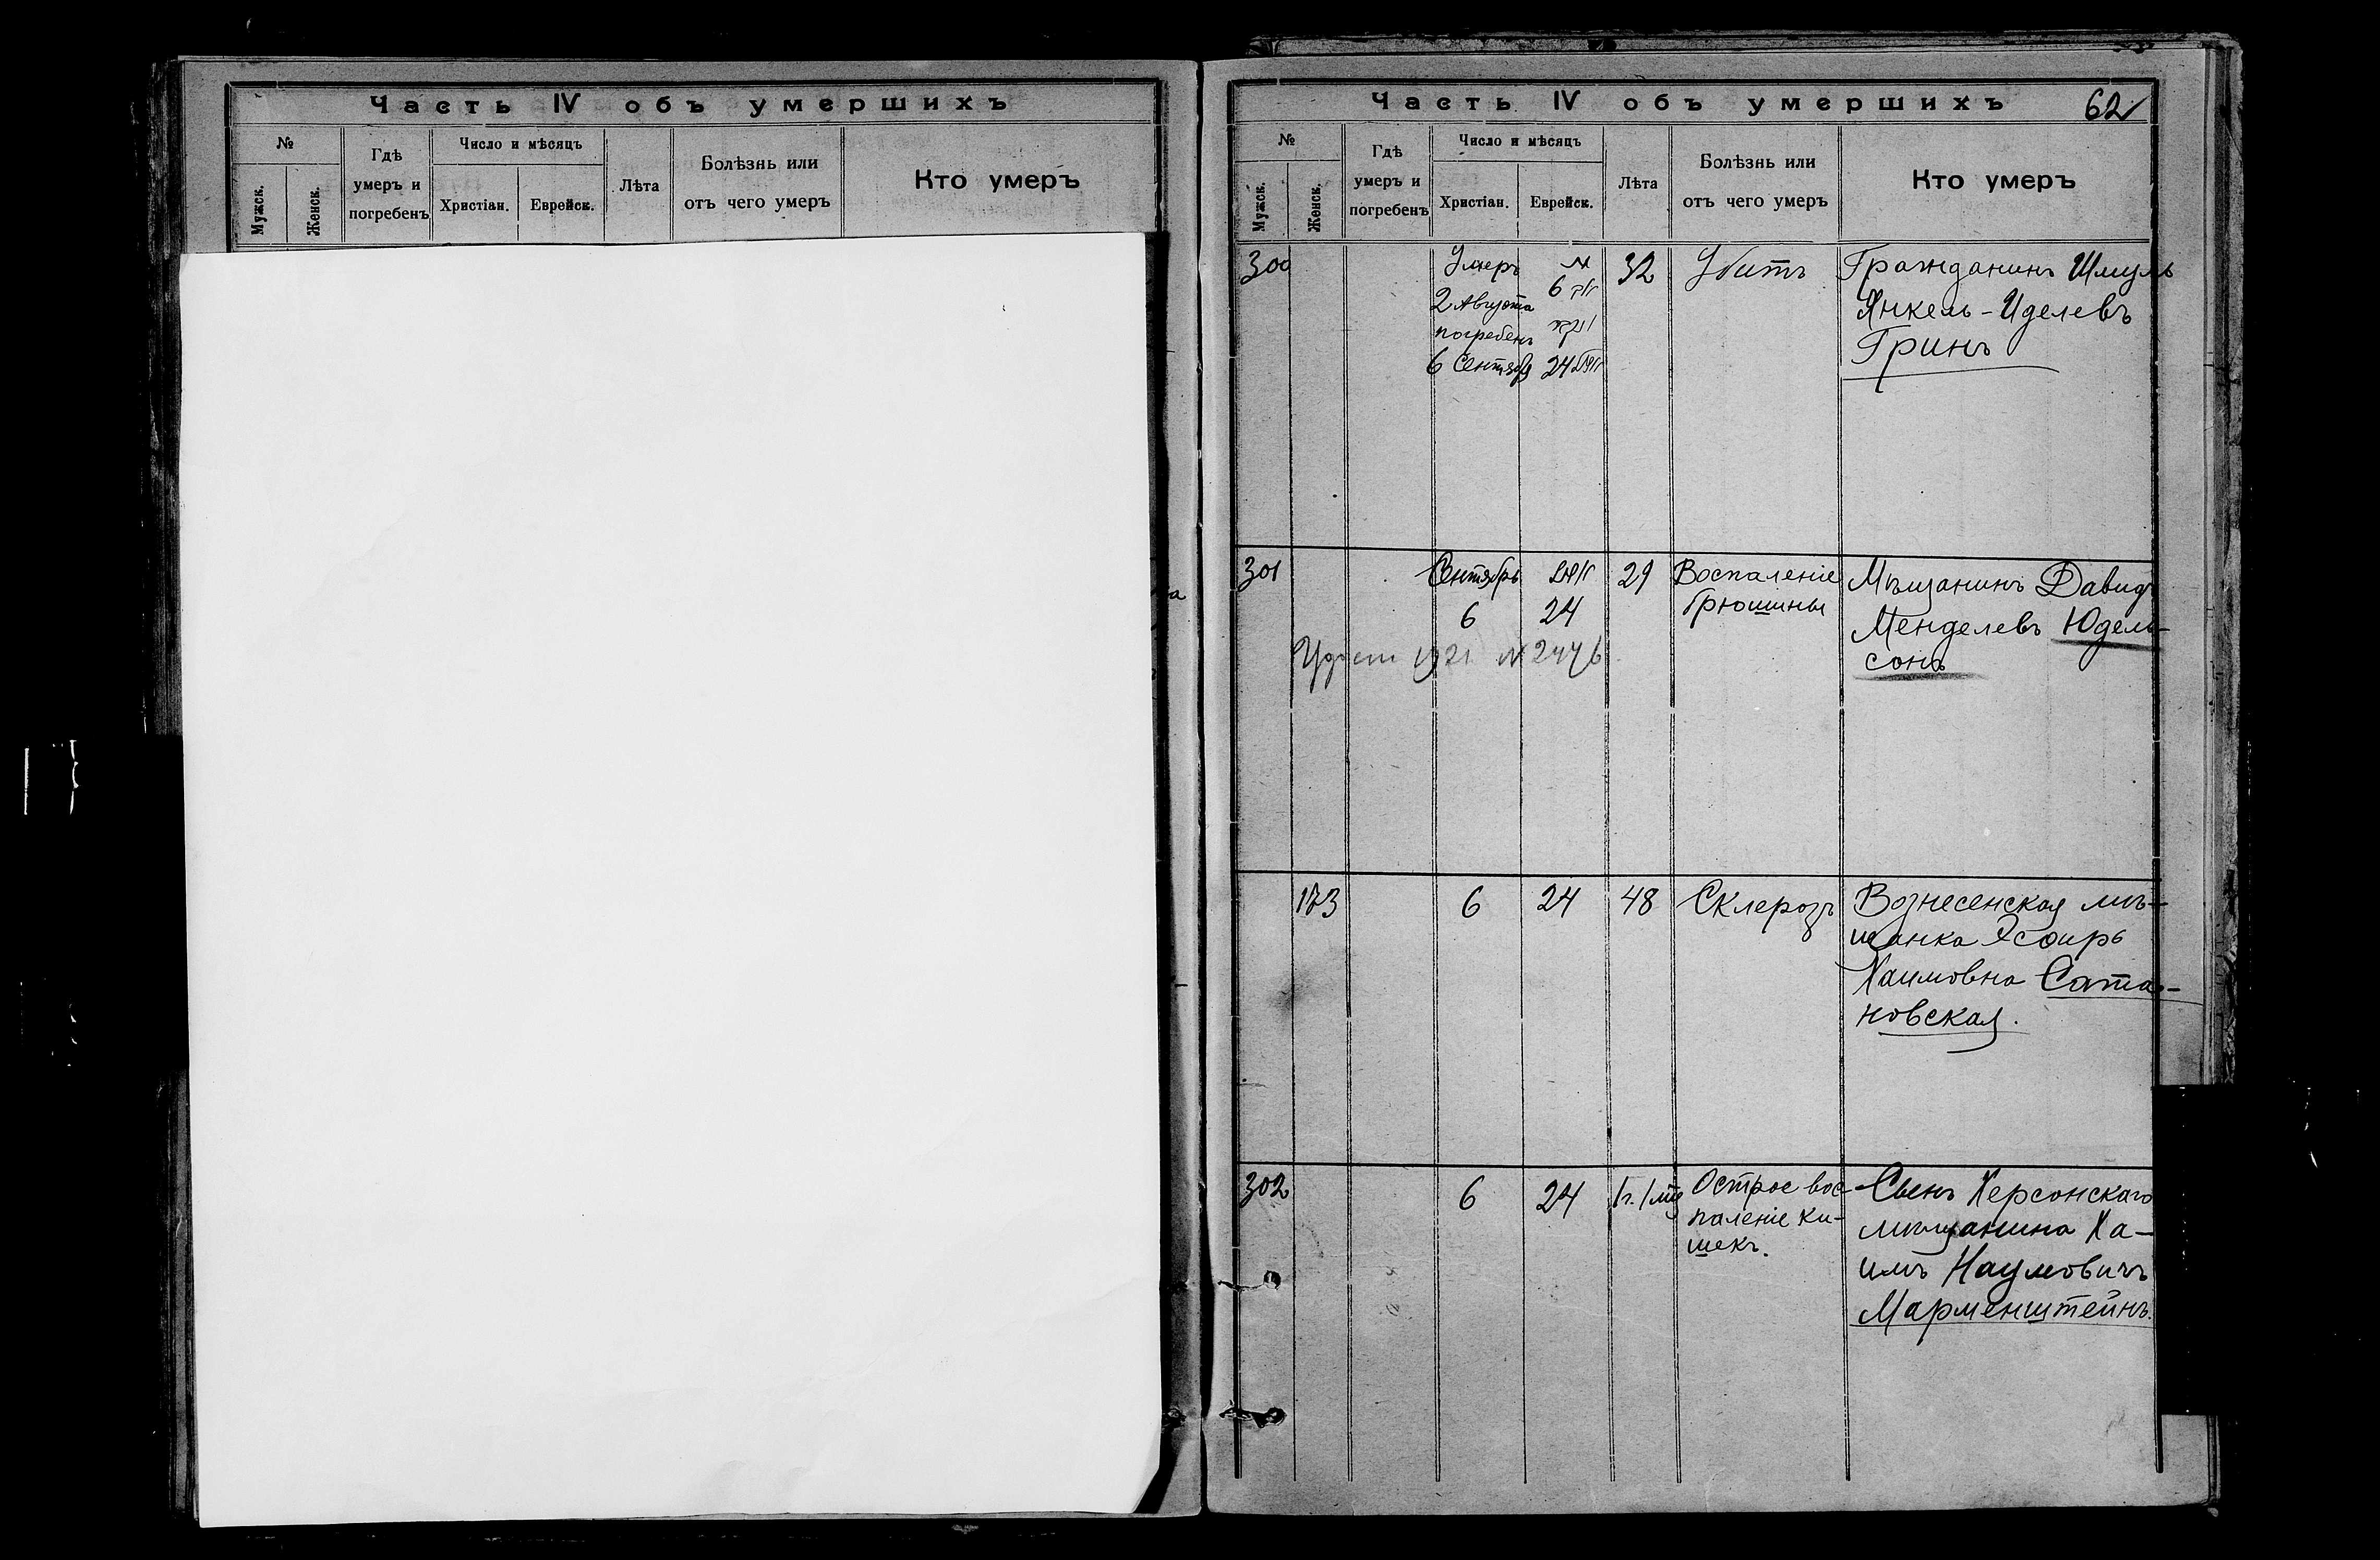 Часть IV объ умершихъ
№
Мужск.
Женск.
Гдѣ
умеръ и
погребенъ
Число и мѣсяцъ
Христіан.
Еврейск.
Лѣта
Болѣзнь или
отъ чего умеръ
Кто умеръ
Часть IV объ умершихъ
62
№
Мужск.
Женск.
Гдѣ
умеръ и
погребенъ
Число и мѣсяцъ
Христіан.
Еврейск.
Лѣта
Болѣзнь или
отъ чего умеръ
Кто умеръ
300
Умеръ
2 Августа
погребенъ
6 Сентября
6
24
32
Убитъ
Гражданинъ Шмуль
Янкель-Иделевъ
Гринъ
301
Сентябрь
6
24
29
Воспаленіе
брюшины
Мѣщанинъ Давид
Менделевъ Юдель-
сонъ
1921 № 2446
173
6
24
48
Склерозъ
Вознесенская мѣ-
щанка Эсфирь
Хаимовна Сата-
новская.
302
6
24
1 г. 1 мѣс
Острое вос-
паленіе ки-
шекъ.
Сынъ Херсонскаго
мѣщанина Ха-
имъ Наумовичъ
Марменштейнъ.